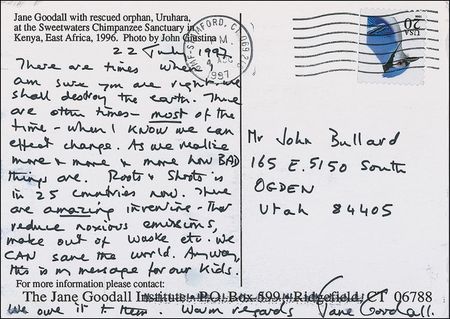 Jane Goodall with rescued orphan, Uruhara,
at the Sweetwaters Chimpanzee Sanctuary in
Kenya, East Africa, 1996. Photo by John Giustina
22 July 1997
There are times when I
am sure you are right - we
shall destroy the earth. There
are other times - most of the
time - when I KNOW we can
effect change. As we realize
more & more & more how BAD
things are. Roots & Shoots is
in 25 countries now. There
are amazing inventions - that
reduce noxious emissions,
make out of waste etc. we
CAN save the world. Anyway,
this is my message for our kids.
For more information please contact:
The Jane Goodall Institute • P.O. Box 599 • Ridgefield, CT 06788
We owe it to them. Warm regards Jane Goodall.
STAMFORD, CT 069
1997
USA
20
Mr John Bullard
165 E. 5150 South
OGDEN
Utah 84405